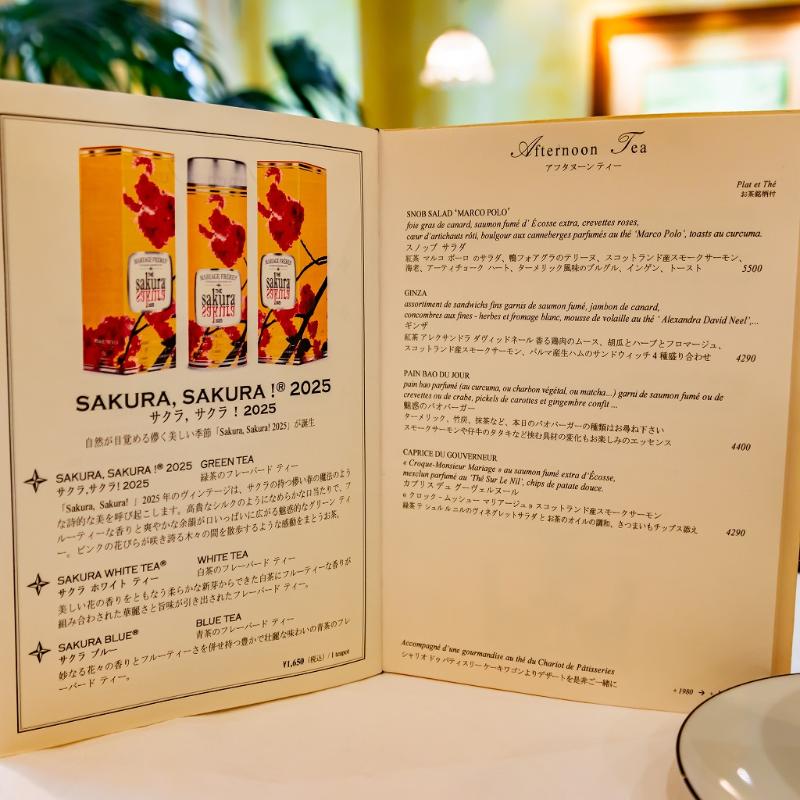 MARIAGE FRÈRES
THE
sakura
sakura
2025
MARIAGE FRÈRES
THE
sakura
sakura
2025
THE
sakura
sakura
2025
SAKURA, SAKURA !® 2025
サクラ, サクラ ! 2025
自然が目覚める儚く美しい季節「Sakura, Sakura! 2025」が誕生
SAKURA, SAKURA !® 2025 GREEN TEA
サクラ,サクラ! 2025 緑茶のフレーバード ティー
「Sakura, Sakura! 」2025 年のヴィンテージは、サクラの持つ儚い春の魔法のよう
な詩的な美を呼び起こします。高貴なシルクのようになめらかな口当たりで、フ
ルーティーな香りと爽やかな余韻が口いっぱいに広がる魅惑的なグリーン ティ
ー。ピンクの花びらが咲き誇る木々の間を散歩するような感動をまとうお茶。
SAKURA WHITE TEA® WHITE TEA
サクラ ホワイト ティー 白茶のフレーバード ティー
美しい花の香りをともなう柔らかな新芽からできた白茶にフルーティーな香りが
組み合わされた華麗さと旨味が引き出されたフレーバード ティー。
SAKURA BLUE® BLUE TEA
サクラ ブルー 青茶のフレーバード ティー
妙なる花々の香りとフルーティーさを併せ持つ豊かで壮麗な味わいの青茶のフレ
ーバード ティー。
¥1,650（税込）/ 1 teapot
Afternoon Tea
アフタヌーン ティー
Plat et Thé
お茶銘柄付
SNOB SALAD "MARCO POLO"
foie gras de canard, saumon fumé d' Écosse extra, crevettes roses,
cœur d'artichauts rôti, boulgour aux canneberges parfumés au thé 'Marco Polo', toasts au curcuma.
スノッブ サラダ
紅茶 マルコ ポーロ のサラダ、鴨フォアグラのテリーヌ、スコットランド産スモークサーモン、
海老、アーティチョーク ハート、ターメリック風味のブルグル、インゲン、トースト 5500
GINZA
assortiment de sandwichs fins garnis de saumon fumé, jambon de canard,
concombres aux fines - herbes et fromage blanc, mousse de volaille au thé ' Alexandra David Neel',...
ギンザ
紅茶 アレクサンドラ ダヴィッドネール 香る鶏肉のムース、胡瓜とハーブとフロマージュ、
スコットランド産スモークサーモン、パルマ産生ハムのサンドウィッチ 4 種盛り合わせ 4290
PAIN BAO DU JOUR
pain bao parfumé (au curcuma, ou charbon végétal, ou matcha...) garni de saumon fumé ou de
crevettes ou de crabe, pickels de carottes et gingembre confit ...
魅惑のバオバーガー
ターメリック、竹炭、抹茶など、本日のバオバーガーの種類はお尋ね下さい
スモークサーモンや仔牛のタタキなど挟む具材の変化もお楽しみのエッセンス 4400
CAPRICE DU GOUVERNEUR
« Croque-Monsieur Mariage » au saumon fumé extra d'Écosse,
mesclun parfumé au 'Thé Sur Le Nil', chips de patate douce.
カプリス デュ グーヴェルヌール
« クロック - ムッシュー マリアージュ » スコットランド産スモークサーモン
緑茶 テ シュル ル ニルのヴィネグレットサラダ と お茶のオイルの調和、さつまいもチップス添え 4290
Accompagné d'une gourmandise au thé du Chariot de Pâtisseries
シャリオ ドゥ パティスリー ケーキワゴンよりデザートを是非ご一緒に
+ 1980